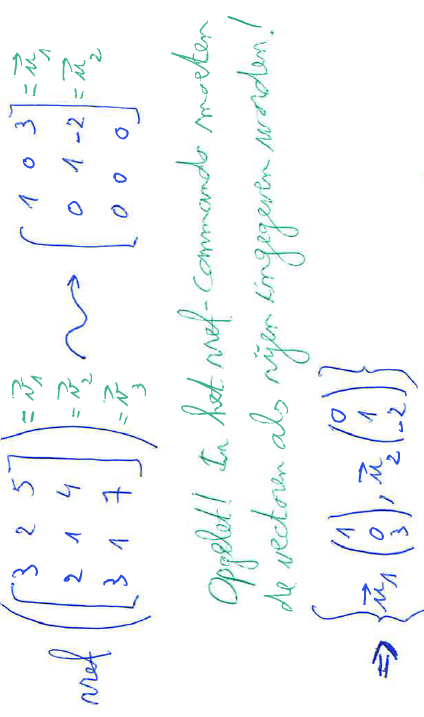 rref([3 2 5] = v⃗₁ [1 0 3] = u⃗₁
2 1 4 = v⃗₂ ⇝ 0 1 -2 = u⃗₂
3 1 7]) = v⃗₃ 0 0 0]
Opgelet! In het rref-commando moeten
de vectoren als rijen ingegeven worden!
⇒ {u⃗₁(1 0 3), u⃗₂(0 1 -2)}